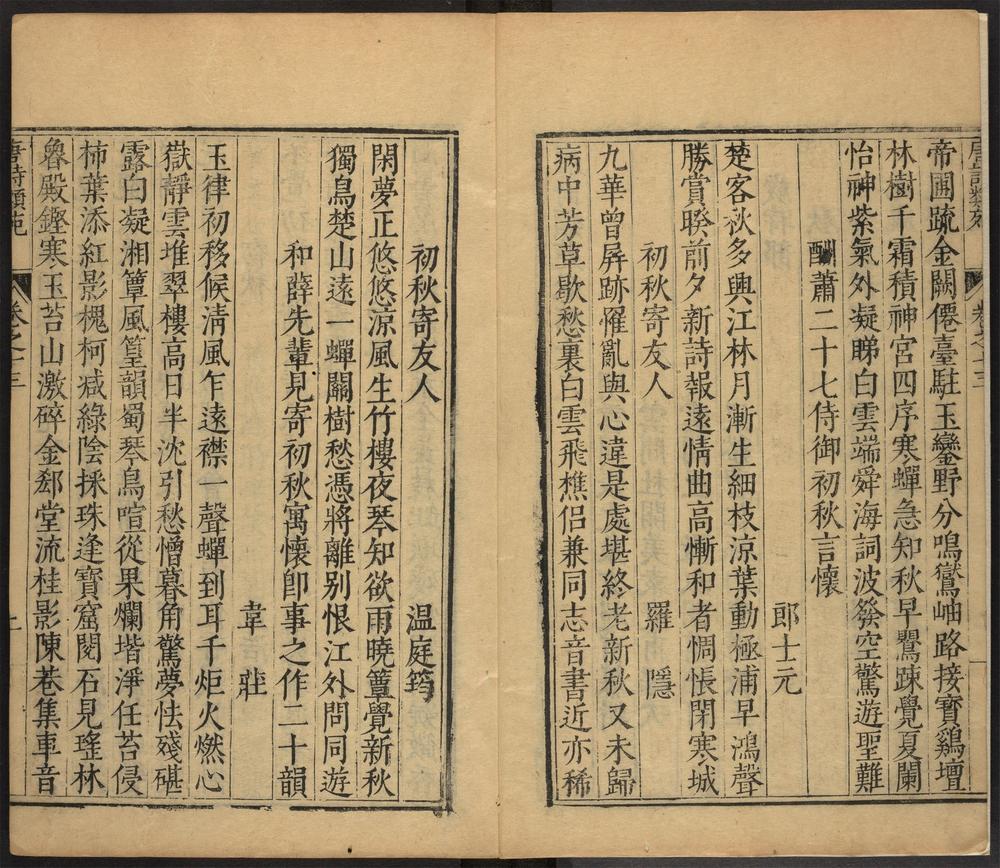 唐詩類苑 卷之十三
帝圃疏金闕僊臺駐玉鑾野分鳴鷟岫路接寶鷄壇
林樹千霜積神宮四序寒蟬急知秋早鸎踈覺夏闌
怡神紫氣外凝睇白雲端舜海詞波發空驚遊聖難
酬蕭二十七侍御初秋言懷
郎士元
楚客秋多興江林月漸生細枝涼葉動極浦早鴻聲
勝賞睽前夕新詩報遠情曲高慚和者惆悵閉寒城
初秋寄友人 羅隱
九華曾屏跡罹亂與心違是處堪終老新秋又未歸
病中芳草歇愁裏白雲飛樵侶兼同志音書近亦稀
初秋寄友人 温庭筠
閑夢正悠悠涼風生竹樓夜琴知欲雨曉簟覺新秋
獨鳥楚山遠一蟬關樹愁憑將離别恨江外問同遊
和薛先輩見寄初秋寓懷卽事之作二十韻
韋莊
玉律初移候淸風乍遠襟一聲蟬到耳千炬火燃心
嶽靜雲堆翠樓高日半沈引愁憎暮角驚夢怯殘碪
露白凝湘簟風篁韻蜀琴鳥喧從果爛堦淨任苔侵
柿葉添紅影槐柯減綠陰採珠逢寶窟閱石見瑤林
魯殿鏗寒玉苔山激碎金郄堂流桂影陳巷集車音
唐詩類苑 卷之十三 二